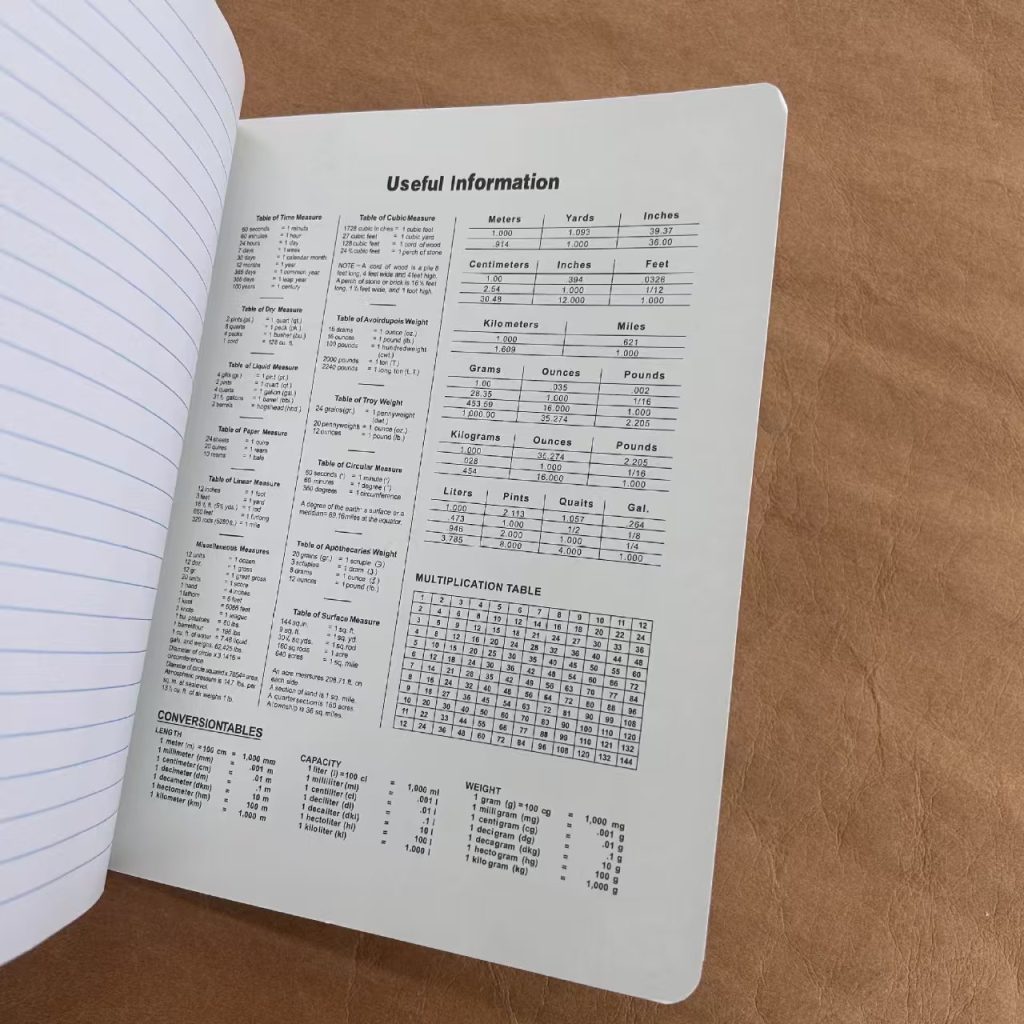 Useful Information
Table of Time Measure
60 seconds = 1 minute
60 minutes = 1 hour
24 hours = 1 day
7 days = 1 week
30 days = 1 calendar month
12 months = 1 year
365 days = 1 common year
366 days = 1 leap year
100 years = 1 century
Table of Dry Measure
2 pints (pt.) = 1 quart (qt.)
8 quarts = 1 peck (pk.)
4 pecks = 1 bushel (bu.)
1 cord = 128 cu. ft.
Table of Liquid Measure
4 gills (gi.) = 1 pint (pt.)
2 pints = 1 quart (qt.)
4 quarts = 1 gallon (gal.)
31½ gallons = 1 barrel (bbl.)
2 barrels = hogshead (hhd.)
Table of Paper Measure
24 sheets = 1 quire
20 quires = 1 ream
10 reams = 1 bale
Table of Linear Measure
12 inches = 1 foot
3 feet = 1 yard
16 ½ ft. (5½ yds.) = 1 rod
660 feet = 1 furlong
320 rods (5280 ft.) = 1 mile
Miscellaneous Measures
12 units = 1 dozen
12 doz. = 1 gross
12 gr. = 1 great gross
20 units = 1 score
1 hand = 4 inches
1 fathom = 6 feet
1 knot = 6086 feet
3 knots = 1 league
1 bu. potatoes = 60 lbs.
1 barrel flour = 196 lbs
1 cu. ft. of water = 7.48 liquid
gals. and weighs, 62.425 lbs.
Diameter of circle x 3.1416 =
circumference
Diameter of circle squared x .7854= area.
Atmospheric pressure is 14.7 lbs. per
sq. in. at sealevel.
13 ½ cu. ft. of air weighs 1 lb.
Table of Cubic Measure
1728 cubic in ches = 1 cubic foot
27 cubic feet = 1 cubic yard
128 cubic feet = 1 cord of wood
24 ¾ cubic feet = 1 perch of stone
NOTE – A cord of wood is a pile 8
feet long, 4 feet wide and 4 feet high.
A perch of stone or brick is 16 ½ feet
long, 1 ½ feet wide, and 1 foot high.
Table of Avoirdupois Weight
16 drams = 1 ounce (oz.)
16 ounces = 1 pound (lb.)
100 pounds = 1 hundredweight
(cwt.)
2000 pounds = 1 ton (T.)
2240 pounds = 1 long ton (L.T.)
Table of Troy Weight
24 grains (gr.) = 1 pennyweight
(dwt.)
20 pennyweights = 1 ounce (oz.)
12 ounces = 1 pound (lb.)
Table of Circular Measure
60 seconds (") = 1 minute (')
60 minutes = 1 degree (°)
360 degrees = 1 circumference
A degree of the earth's surface or a
meridian= 69.16 miles at the equator.
Table of Apothecaries Weight
20 grains (gr.) = 1 scruple
3 scruples = 1 dram
8 drams = 1 ounce
12 ounces = 1 pound (lb.)
Table of Surface Measure
144 sq.in. = 1 sq. ft.
9 sq. ft. = 1 sq. yd.
30¼ sq.yds. = 1 sq.rod
160 sq.rods = 1 acre
640 acres = 1 sq. mile
An acre measures 208.71 ft. on
each side.
A section of land is 1 sq. mile.
A quarter section is 160 acres.
A township is 36 sq. miles.
Meters Yards Inches
1.000 1.093 39.37
.914 1.000 36.00
Centimeters Inches Feet
1.00 .394 .0328
2.54 1.000 1/12
30.48 12.000 1.000
Kilometers Miles
1.000 621
1.609 1.000
Grams Ounces Pounds
1.00 .035 .002
28.35 1.000 1/16
453.59 16.000 1.000
1,000.00 35.274 2.205
Kilograms Ounces Pounds
1.000 35.274 2.205
.028 1.000 1/16
.454 16.000 1.000
Liters Pints Quaits Gal.
1.000 2.113 1.057 .264
.473 1.000 1/2 1/8
.946 2.000 1.000 1/4
3.785 8.000 4.000 1.000
MULTIPLICATION TABLE
1 2 3 4 5 6 7 8 9 10 11 12
2 4 6 8 10 12 14 16 18 20 22 24
3 6 9 12 15 18 21 24 27 30 33 36
4 8 12 16 20 24 28 32 36 40 44 48
5 10 15 20 25 30 35 40 45 50 55 60
6 12 18 24 30 36 42 48 54 60 66 72
7 14 21 28 35 42 49 56 63 70 77 84
8 16 24 32 40 48 56 64 72 80 88 96
9 18 27 36 45 54 63 72 81 90 99 108
10 20 30 40 50 60 70 80 90 100 110 120
11 22 33 44 55 66 77 88 99 110 121 132
12 24 36 48 60 72 84 96 108 120 132 144
CONVERSIONTABLES
LENGTH
1 meter (m) =100 cm = 1,000 mm
1 millimeter (mm) = .001 m
1 centimeter (cm) = .01 m
1 decimeter (dm) = .1 m
1 decameter (dkm) = 10 m
1 hectometer (hm) = 100 m
1 kilometer (km) = 1.000 m
CAPACITY
1 liter (l) =100 cl = 1,000 ml
1 milliliter (ml) = .001 l
1 centiliter (cl) = .01 l
1 deciliter (dl) = .1 l
1 decaliter (dkl) = 10 l
1 hectoliter (hl) = 100 l
1 kiloliter (kl) = 1.000 l
WEIGHT
1 gram (g) =100 cg = 1,000 mg
1 milligram (mg) = .001 g
1 centigram (cg) = .01 g
1 decigram (dg) = .1 g
1 decagram (dkg) = 10 g
1 hectogram (hg) = 100 g
1 kilogram (kg) = 1,000 g